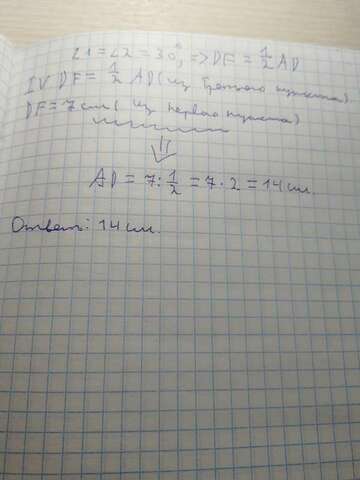 ∠1=∠2=30°, => DF = 1/2 AD
IV DF = 1/2 AD (из третьего пункта)
DF = 7 см (из первого пункта)
⇓
AD = 7 : 1/2 = 7 · 2 = 14 см.
Ответ: 14 см.